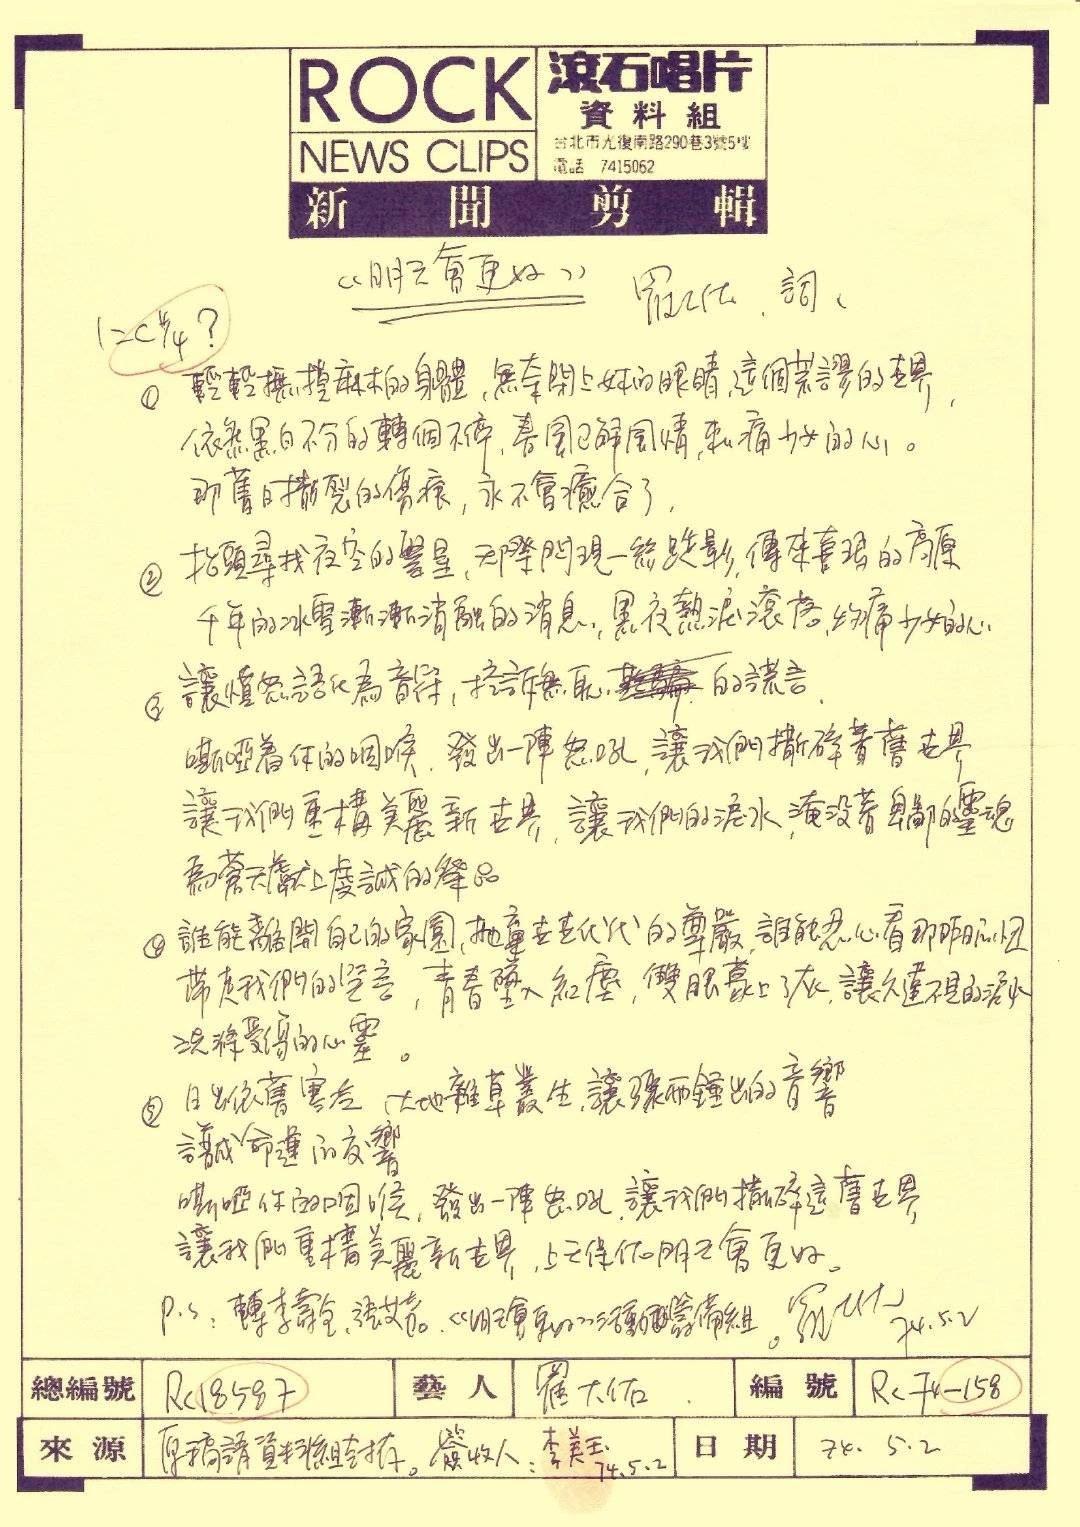 ROCK
NEWS CLIPS
滾石唱片
資料組
台北市光復南路290巷3號5樓
電話 7415062
新聞剪輯
《明天會更好》 羅大佑、詞、
1=C 4/4?
① 輕輕撫摸麻木的身體,無奈閉上妳的眼睛,這個荒謬的世界,
依然黑白不分的轉個不停,春風已解風情,刺痛少女的心。
那舊日撕裂的傷痕,永不會癒合了,
② 抬頭尋找夜空的繁星,天際閃現一絲蹤影,傳來喜瑪的高原
千年的冰雪漸漸消融的消息,黑夜熱淚滾落,灼痛少女的心
③ 讓憤怒語化為音符,控訴無恥的謊言,
嘶啞著你的咽喉,發出一陣怒吼,讓我們撕碎著舊世界
讓我們重構美麗新世界,讓我們的淚水,淹沒著卑鄙的靈魂
為蒼天獻上虔誠的祭品
④ 誰能離開自己的家園,拋棄世世代代的尊嚴,誰能忍心看那昨日的
帶走我們的笑言,青春墜入紅塵,雙眼蒙上了灰,讓久違不見的淚水
洗滌受傷的心靈。
⑤ 日出依舊寒冷,大地雜草叢生,讓鐘出的音響
譜成命運的交響
嘶啞你的咽喉,發出一陣怒吼,讓我們撕碎這舊世界
讓我們重構美麗新世界,上天保佑明天會更好。
P.S:轉李壽全、張艾嘉。《明天會更好》活動籌備組。羅大佑 74.5.2
總編號 Rc18587 藝人 羅大佑 編號 Rc74-158
來源 原稿請資料組封存。簽收人:李美玉 74.5.2 日期 74.5.2